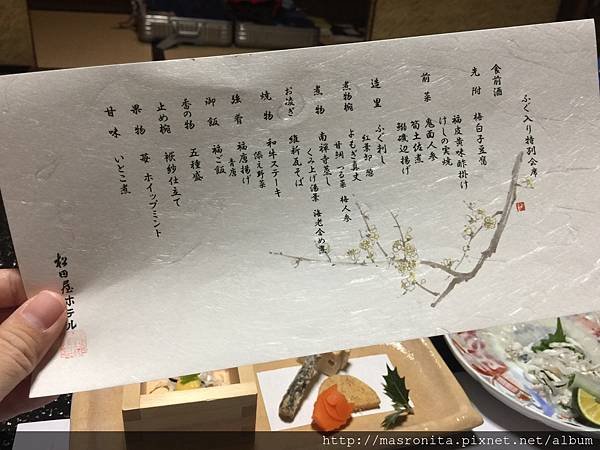 ふく入り特別会席
食前酒
先附 梅白子豆腐
福皮黄味酢掛け
けしの実焼
前菜 鬼面人参
筍土佐煮
鰯磯辺揚げ
造里 ふく刺し
紅葉卸 葱
煮物椀 よもぎ真丈
甘鯛 つる菜 梅人参
煮物 南禅寺蒸し
くみ上げ湯葉 海老含め煮
お凌ぎ 維新瓦そば
焼物 和牛ステーキ
添え野菜
強肴 福唐揚げ
青唐
御飯 福ご飯
香の物 五種盛
止め椀 袱紗仕立て
果物 苺 ホイップミント
甘味 いとこ煮
松田屋ホテル
http://masronita.pixnet.net/album